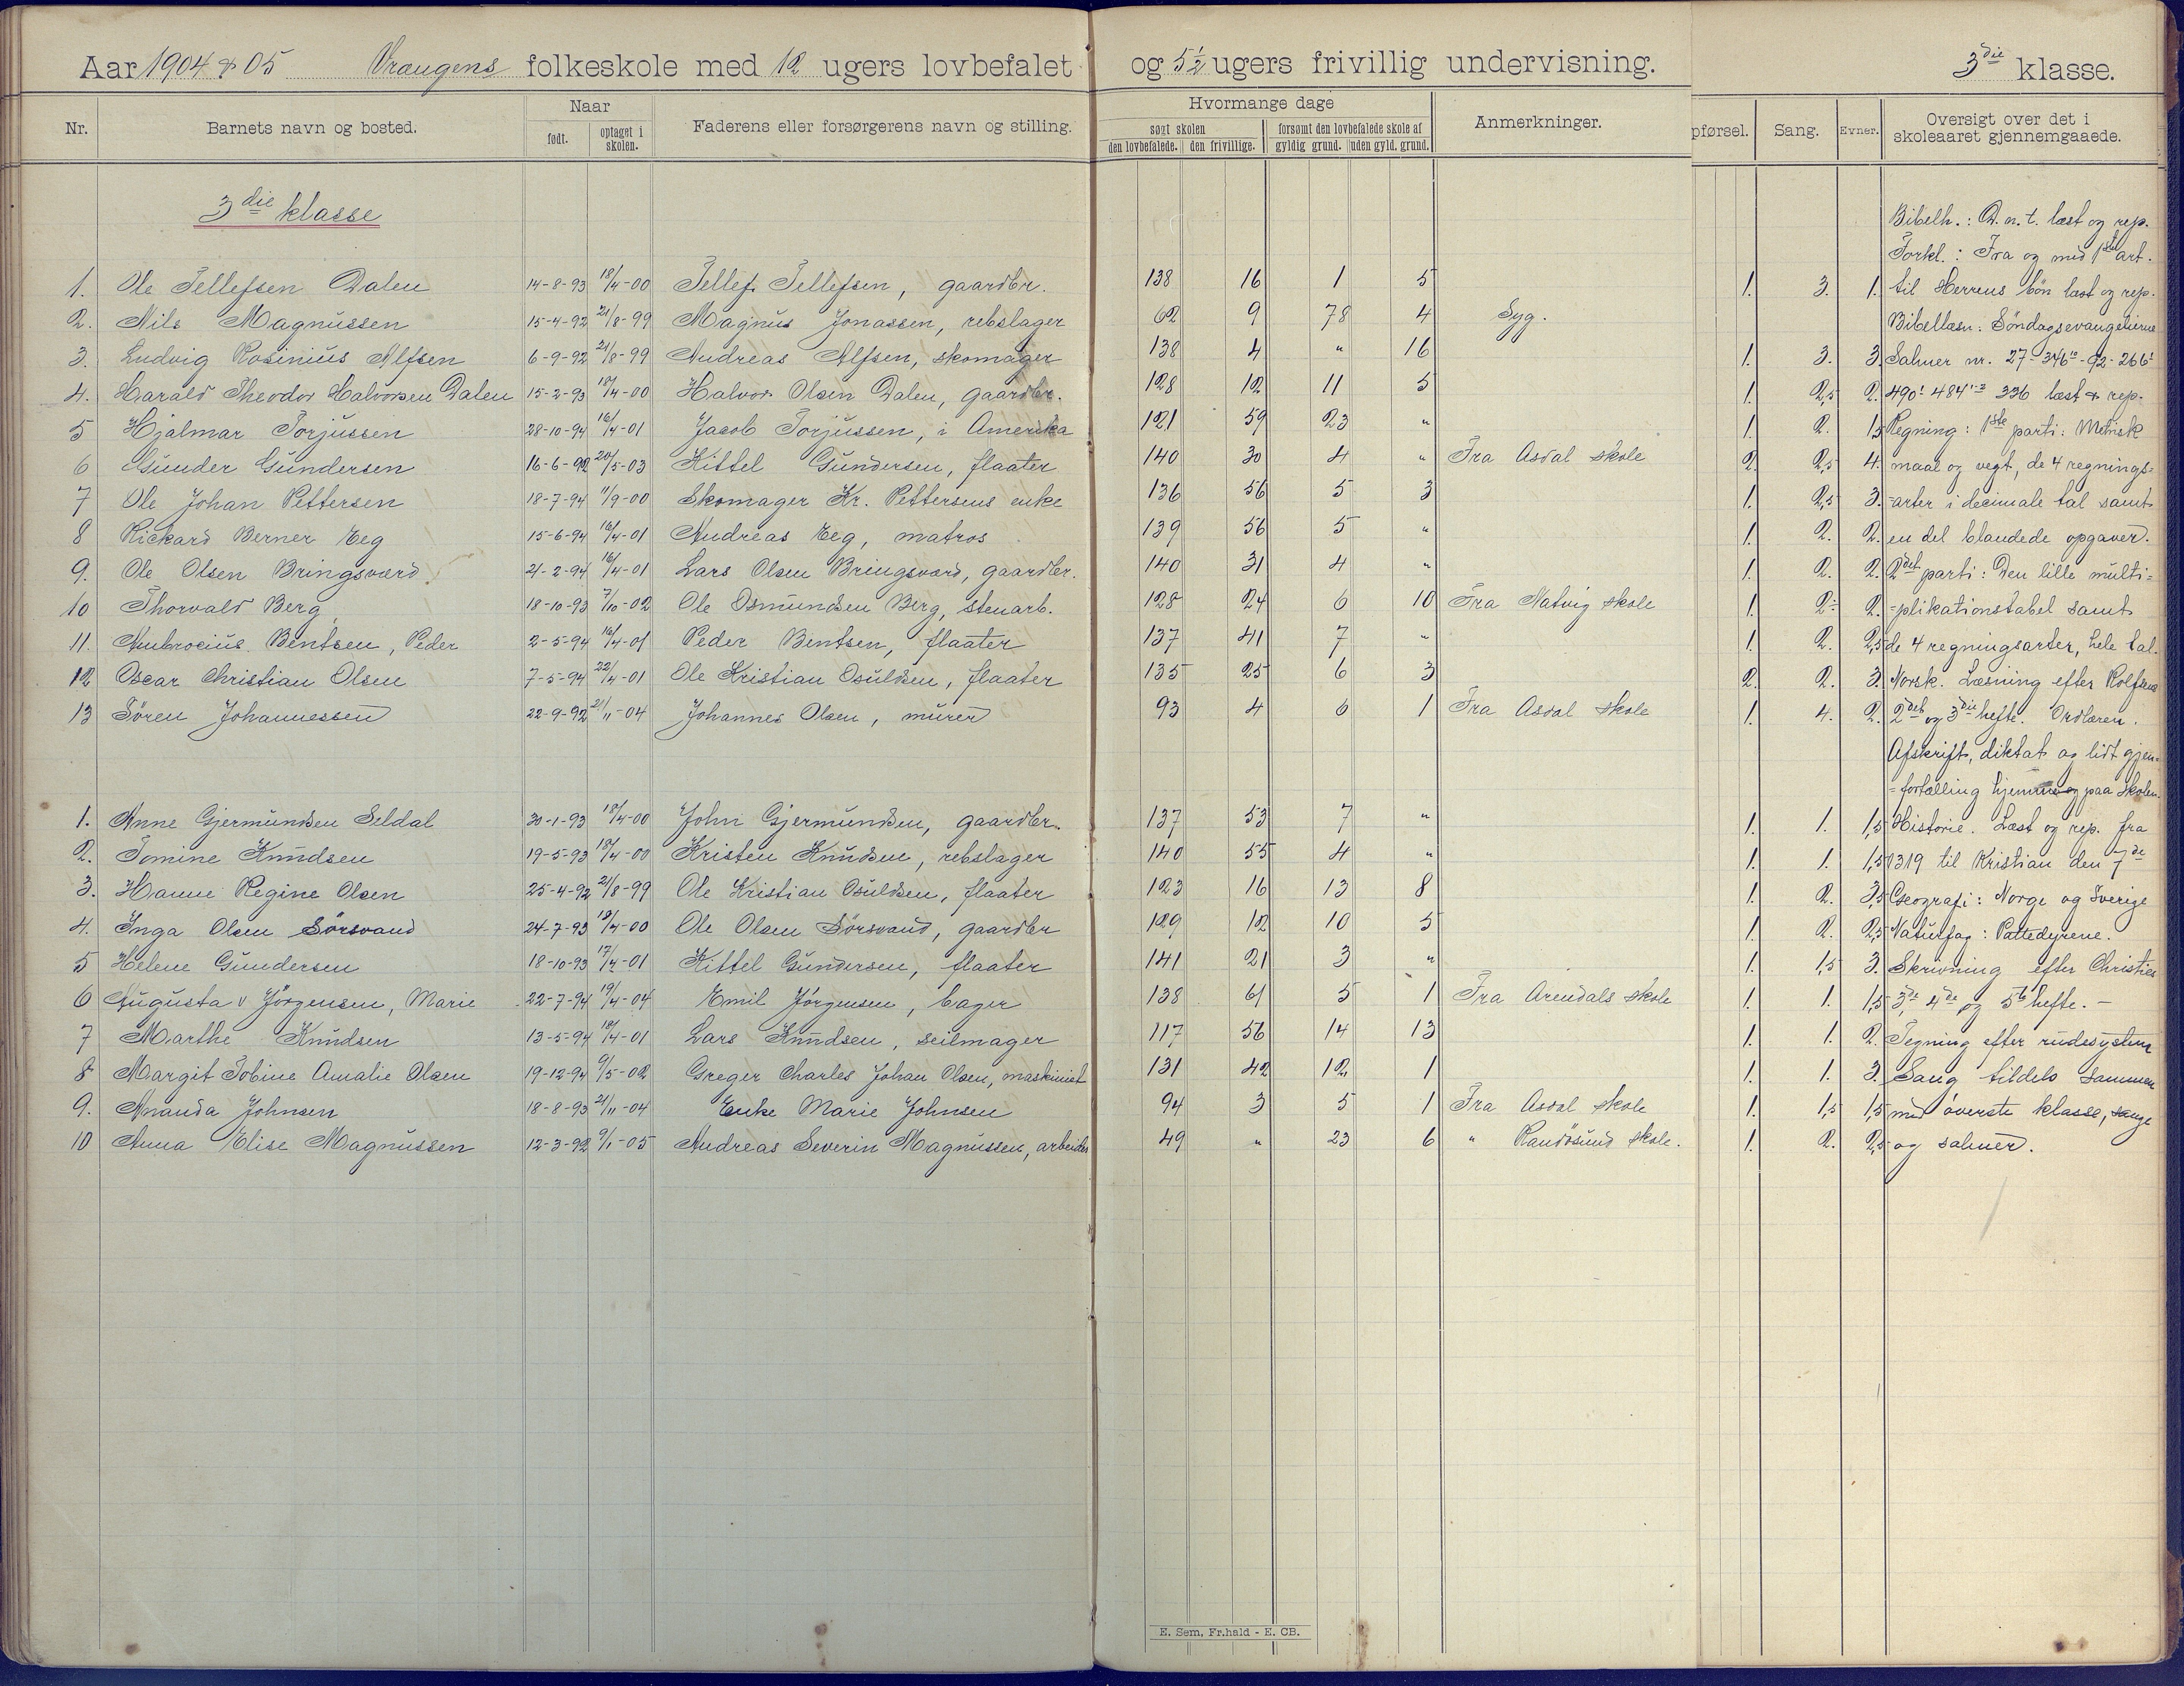 Aar 1904 & 05 Vrangens folkeskole med 12 ugers lovbefalet og 5½ ugers frivillig undervisning. 3die klasse.
Nr. Barnets navn og bosted. Naar født. optaget i skolen. Faderens eller forsørgerens navn og stilling. Hvormange dage søgt skolen den lovbefalede. den frivillige. forsømt den lovbefalede skole af gyldig grund. uden gyld. grund. Anmerkninger. pførsel. Sang. Evner. Oversigt over det i skoleaaret gjennemgaaede.
3die klasse
Bibelh.: D. n. t. læst og rep.
Forkl.: Fra og med 1ste art.
1. Ole Tellefsen Dalen 14-8-93 18/4-00 Tellef Tellefsen, gaardbr. 138 16 1 5 1. 3. 1. til Herrens bön læst og rep.
2. Nils Magnussen 15-4-92 21/8-99 Magnus Jonassen, rebslager 62 9 78 4 Syg. Bibellæsn: Söndagsevangelierne
3. Ludvig Rosinius Alfsen 6-9-92 21/8-99 Andreas Alfsen, skomager 138 4 " 16 1. 3. 3. Salmer nr. 27-346-92-266
4. Harald Theodor Halvorsen Dalen 15-2-93 18/4-00 Halvor Olsen Dalen, gaardbr. 128 12 11 5 1. 2,5 2. 490 484 336 læst & rep.
5 Hjalmar Torjussen 28-10-94 16/4-01 Jacob Torjussen, i Amerika 121 59 23 " 1. 2. 1,5 Regning: 1ste parti: Metrisk
6 Gunder Gundersen 16-6-92 20/5-03 Kittel Gundersen, flaater 140 30 4 " Fra Asdal skole 2. 2,5 4. maal og vegt, de 4 regnings-
7 Ole Johan Pettersen 18-7-94 11/9-00 Skomager Kr. Pettersens enke 136 56 5 3 1. 2,5 3. -arter i decimale tal samt
8 Rickard Berner Eeg 15-6-94 16/4-01 Andreas Eeg, matros 139 56 5 " 1. 2. 2. en del blandede opgaver.
9. Ole Olsen Bringsværd 21-2-94 16/4-01 Lars Olsen Bringsværd, gaardbr. 140 31 4 " 1. 2. 2. 2det parti: Den lille multi=
10 Thorvald Berg 18-10-93 7/10-02 Ole Osmundsen Berg, stenarb. 128 24 6 10 Fra Natvig skole 1. 2- 2. =plikationstabel samt
11. Ambrocius Bentsen, Peder 2-5-94 16/4-01 Peder Bentsen, flaater 137 41 7 " 1. 2. 2,5 de 4 regningsarter, hele tal.
12 Oscar Christian Olsen 7-5-94 22/4-01 Ole Kristian Osuldsen, flaater 135 25 6 3 2. 2. 3. Norsk. Læsning efter Rolfsens
13 Sören Johannessen 22-9-92 21/11-04 Johannes Olsen, murer 93 4 6 1 Fra Asdal skole 1. 4. 2. 2det og 3die hefte. Ordlæren.
Afskrift, diktat og lidt gjen=
=fortælling hjemme og paa skolen.
1. Anne Gjermundsen Seldal 30-1-93 18/4-00 John Gjermundsen, gaardbr. 137 53 7 " 1. 1. 1,5 Historie. Læst og rep. fra
2. Tomine Knudsen 19-5-93 18/4-00 Kristen Knudsen, rebslager 140 55 4 " 1. 1. 1,5 1319 til Kristian den 7de
3. Hanne Regine Olsen 25-4-92 21/8-99 Ole Kristian Osuldsen, flaater 123 16 13 8 1. 2. 3,5 Geografi: Norge og Sverige
4. Inga Olsen Sörsvand 24-7-93 18/4-00 Ole Olsen Sörsvand, gaardbr 129 12 10 5 1. 2. 2,5 Naturfag: Pattedyrene.
5 Helene Gundersen 18-10-93 17/4-01 Kittel Gundersen, flaater 141 21 3 " 1. 1,5 3. Skrivning efter Christies
6 Augusta v Jörgensen, Marie 22-7-94 19/4-04 Emil Jörgensen, bager 138 61 5 1 Fra Arendals skole 1. 1. 1,5 3de, 4de og 5te hefte. -
7 Marthe Knudsen 13-5-94 18/4-01 Lars Knudsen, seilmager 117 56 14 13 1. 1. 2. Tegning efter rudesystem
8 Margit Tobine Amalie Olsen 19-12-94 9/5-02 Greger Charles Johan Olsen, maskinist 131 42 12 1 1. 1. 3. Sang tildels sammen
9. Ananda Johnsen 18-8-93 21/11-04 Enke Marie Johnsen 94 3 5 1 Fra Asdal skole 1. 1,5 1,5 med överste klasse, sange
10 Anna Elise Magnussen 12-3-92 9/1-05 Andreas Severin Magnussen, arbeider 49 " 23 6 " Randösund skole. 1. 2. 2,5 og salmer.
E. Sem, Fr.hald - E. CB.